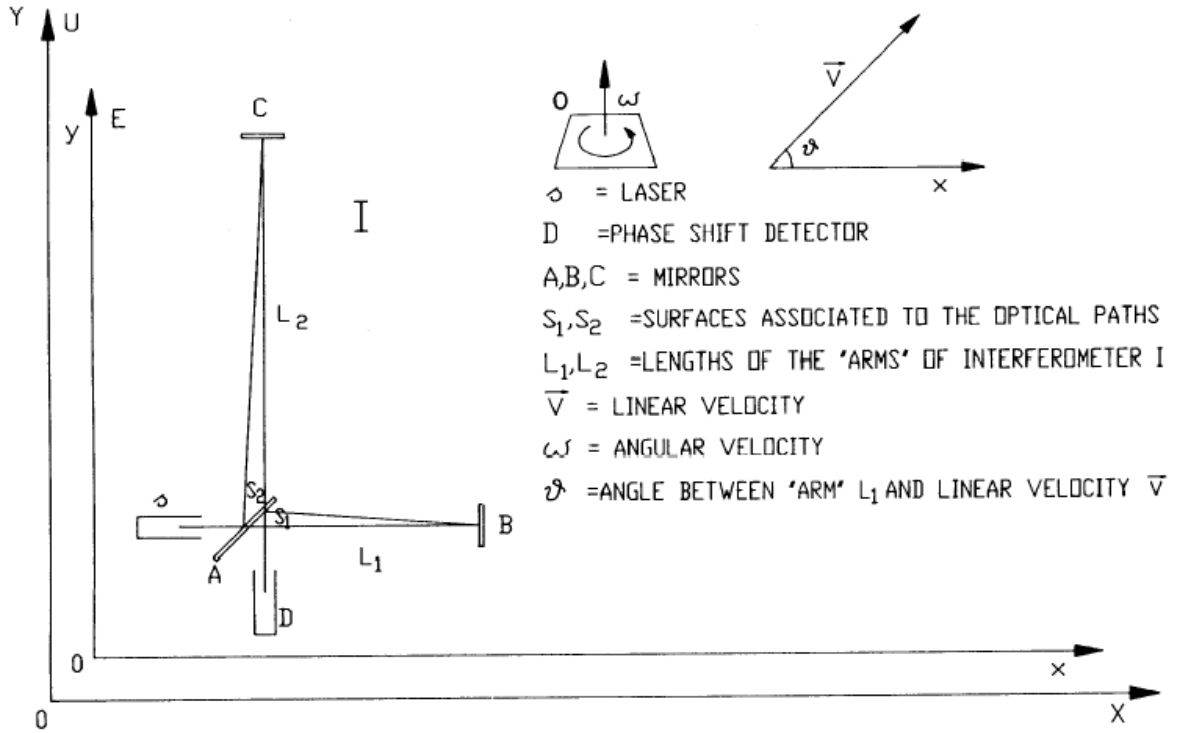 Y U
y E
C
I
L2
s
S2
S1
A
L1
B
D
0 x
0 X
O ω
V⃗
ϑ
x
s = LASER
D =PHASE SHIFT DETECTOR
A,B,C = MIRRORS
S1,S2 =SURFACES ASSOCIATED TO THE OPTICAL PATHS
L1,L2 =LENGTHS OF THE "ARMS" OF INTERFEROMETER I
V⃗ = LINEAR VELOCITY
ω = ANGULAR VELOCITY
ϑ =ANGLE BETWEEN "ARM" L1 AND LINEAR VELOCITY V⃗